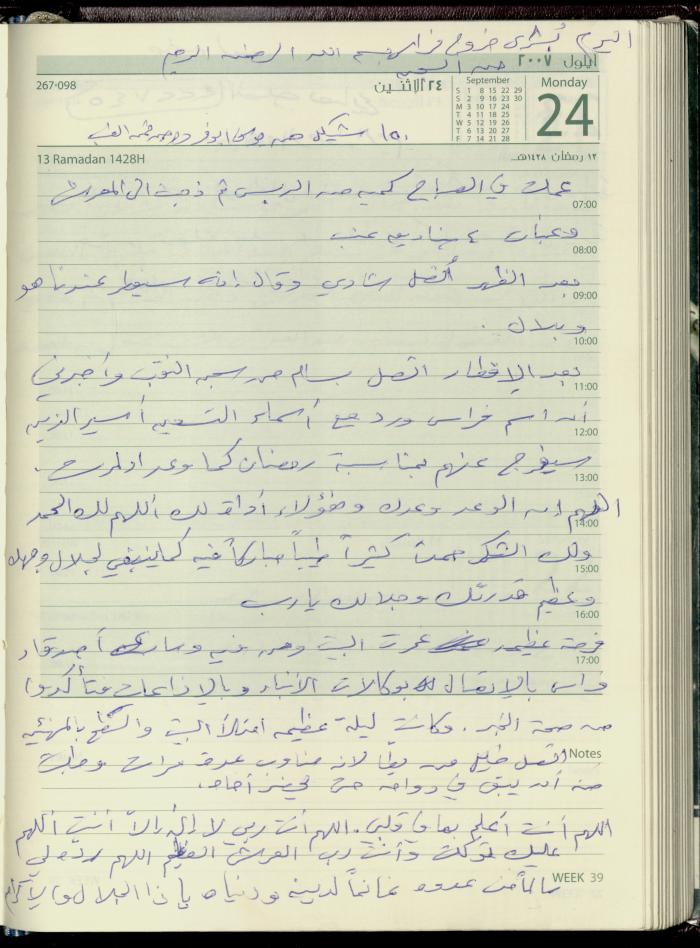 اليوم بُشرى خروج فراس بسم الله الرحمن الرحيم
من السجن
أيلول ٢٠٠٧
267-098
٢٤ الاثنين
September
S 1 8 15 22 29
S 2 9 16 23 30
M 3 10 17 24
T 4 11 18 25
W 5 12 19 26
T 6 13 20 27
F 7 14 21 28
Monday
24
١٥٠ شيكل من
13 Ramadan 1428H
١٣ رمضان ١٤٢٨هـ
عملت في الصباح كمية من الدبس ثم ذهبت الى المعرش
07:00
وعبأت ٤ صناديق عنب
08:00
بعد الظهر اتصل شادي وقال إنه سيفطر عندنا هو
09:00
وبلال .
10:00
بعد الإفطار اتصل بسام من سجن النقب وأخبرني
11:00
أن اسم فراس ورد مع أسماء التسعين أسير الذين
12:00
سيفرج عنهم بمناسبة رمضان كما وعد اولمرت .
13:00
اللهم إن الوعد وعدك وهؤلاء أدوات لك اللهم لك الحمد
14:00
ولك الشكر حمداً كثيراً طيباً مباركاً فيه كما ينبغي لجلال وجهك
15:00
وعظيم قدرتك وجلالك يا رب
16:00
فرحة عظيمة غمرت البيت ومن فيه وسارع أصدقاء
17:00
فراس بالإتصال بوكالات الأنباء وبالإذاعات فتأكدوا
من صحة الخبر . وكانت ليلة عظيمة امتلأ البيت والسطح بالمهنئين
Notes
اتصل خليل من يطا لانه مناوب عرف فراس وطلبت
منه أن يبقى في دوامه حتى يحضر أخاه .
اللهم أنت أعلم بما في قلبي . اللهم أنت ربي لا إله إلا أنت اللهم
عليك توكلت وأنت رب العرش العظيم اللهم رده لي
سالماً من عدوه غانماً لدينه ودنياه يا ذا الجلال والإكرام
WEEK 39